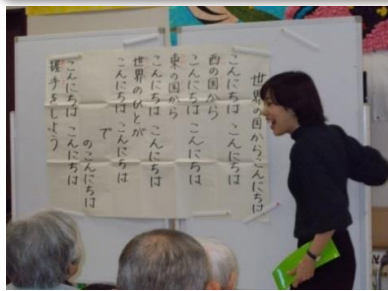 世界の国からこんにちは
こんにちは こんにちは
西の国から
こんにちは こんにちは
東の国から
こんにちは こんにちは
世界のひとが
こんにちは こんにちは
で
のこんにちは
こんにちは こんにちは
握手をしよう